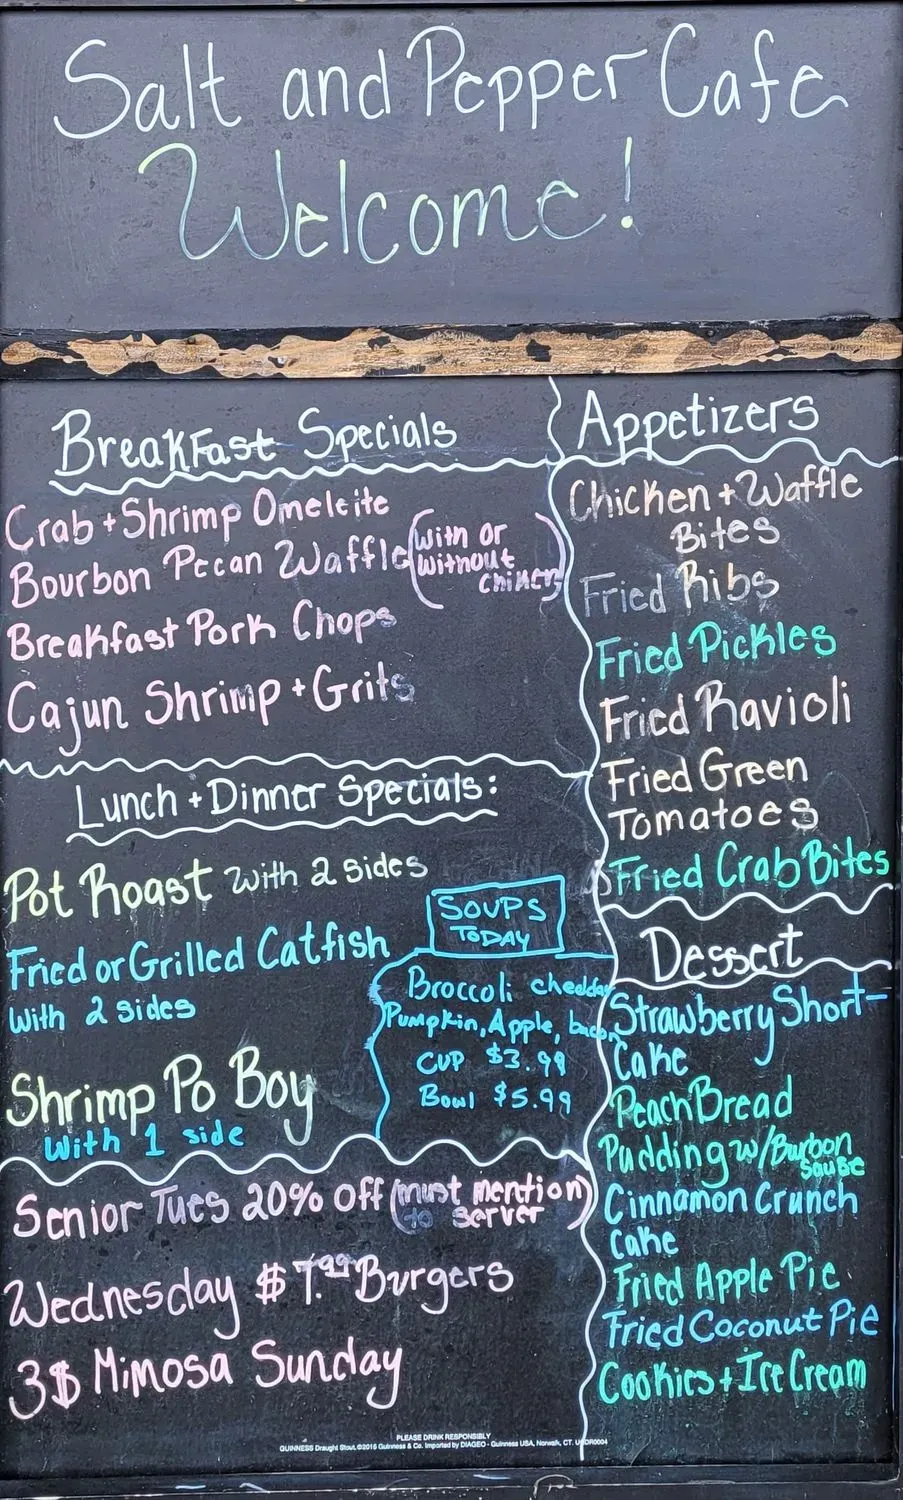 Salt and Pepper Cafe
Welcome!
Breakfast Specials
Crab + Shrimp Omelette
Bourbon Pecan Waffle (with or
without
chicken)
Breakfast Pork Chops
Cajun Shrimp + Grits
Lunch + Dinner Specials:
Pot Roast with 2 sides
Fried or Grilled Catfish
with 2 sides
Shrimp Po Boy
with 1 side
SOUPS
TODAY
Broccoli cheddar
Pumpkin, Apple, bacon
CUP $3.99
Bowl $5.99
Senior Tues 20% off (must mention
to server)
Wednesday $7.99 Burgers
3$ Mimosa Sunday
Appetizers
Chicken + Waffle
Bites
Fried Ribs
Fried Pickles
Fried Ravioli
Fried Green
Tomatoes
Fried Crab Bites
Dessert
Strawberry Short-
Cake
Peach Bread
Pudding w/ Burbon
sause
Cinnamon Crunch
Cake
Fried Apple Pie
Fried Coconut Pie
Cookies + Ice Cream
PLEASE DRINK RESPONSIBLY
GUINNESS Draught Stout. ©2016 Guinness & Co. Imported by DIAGEO - Guinness USA, Norwalk, CT.